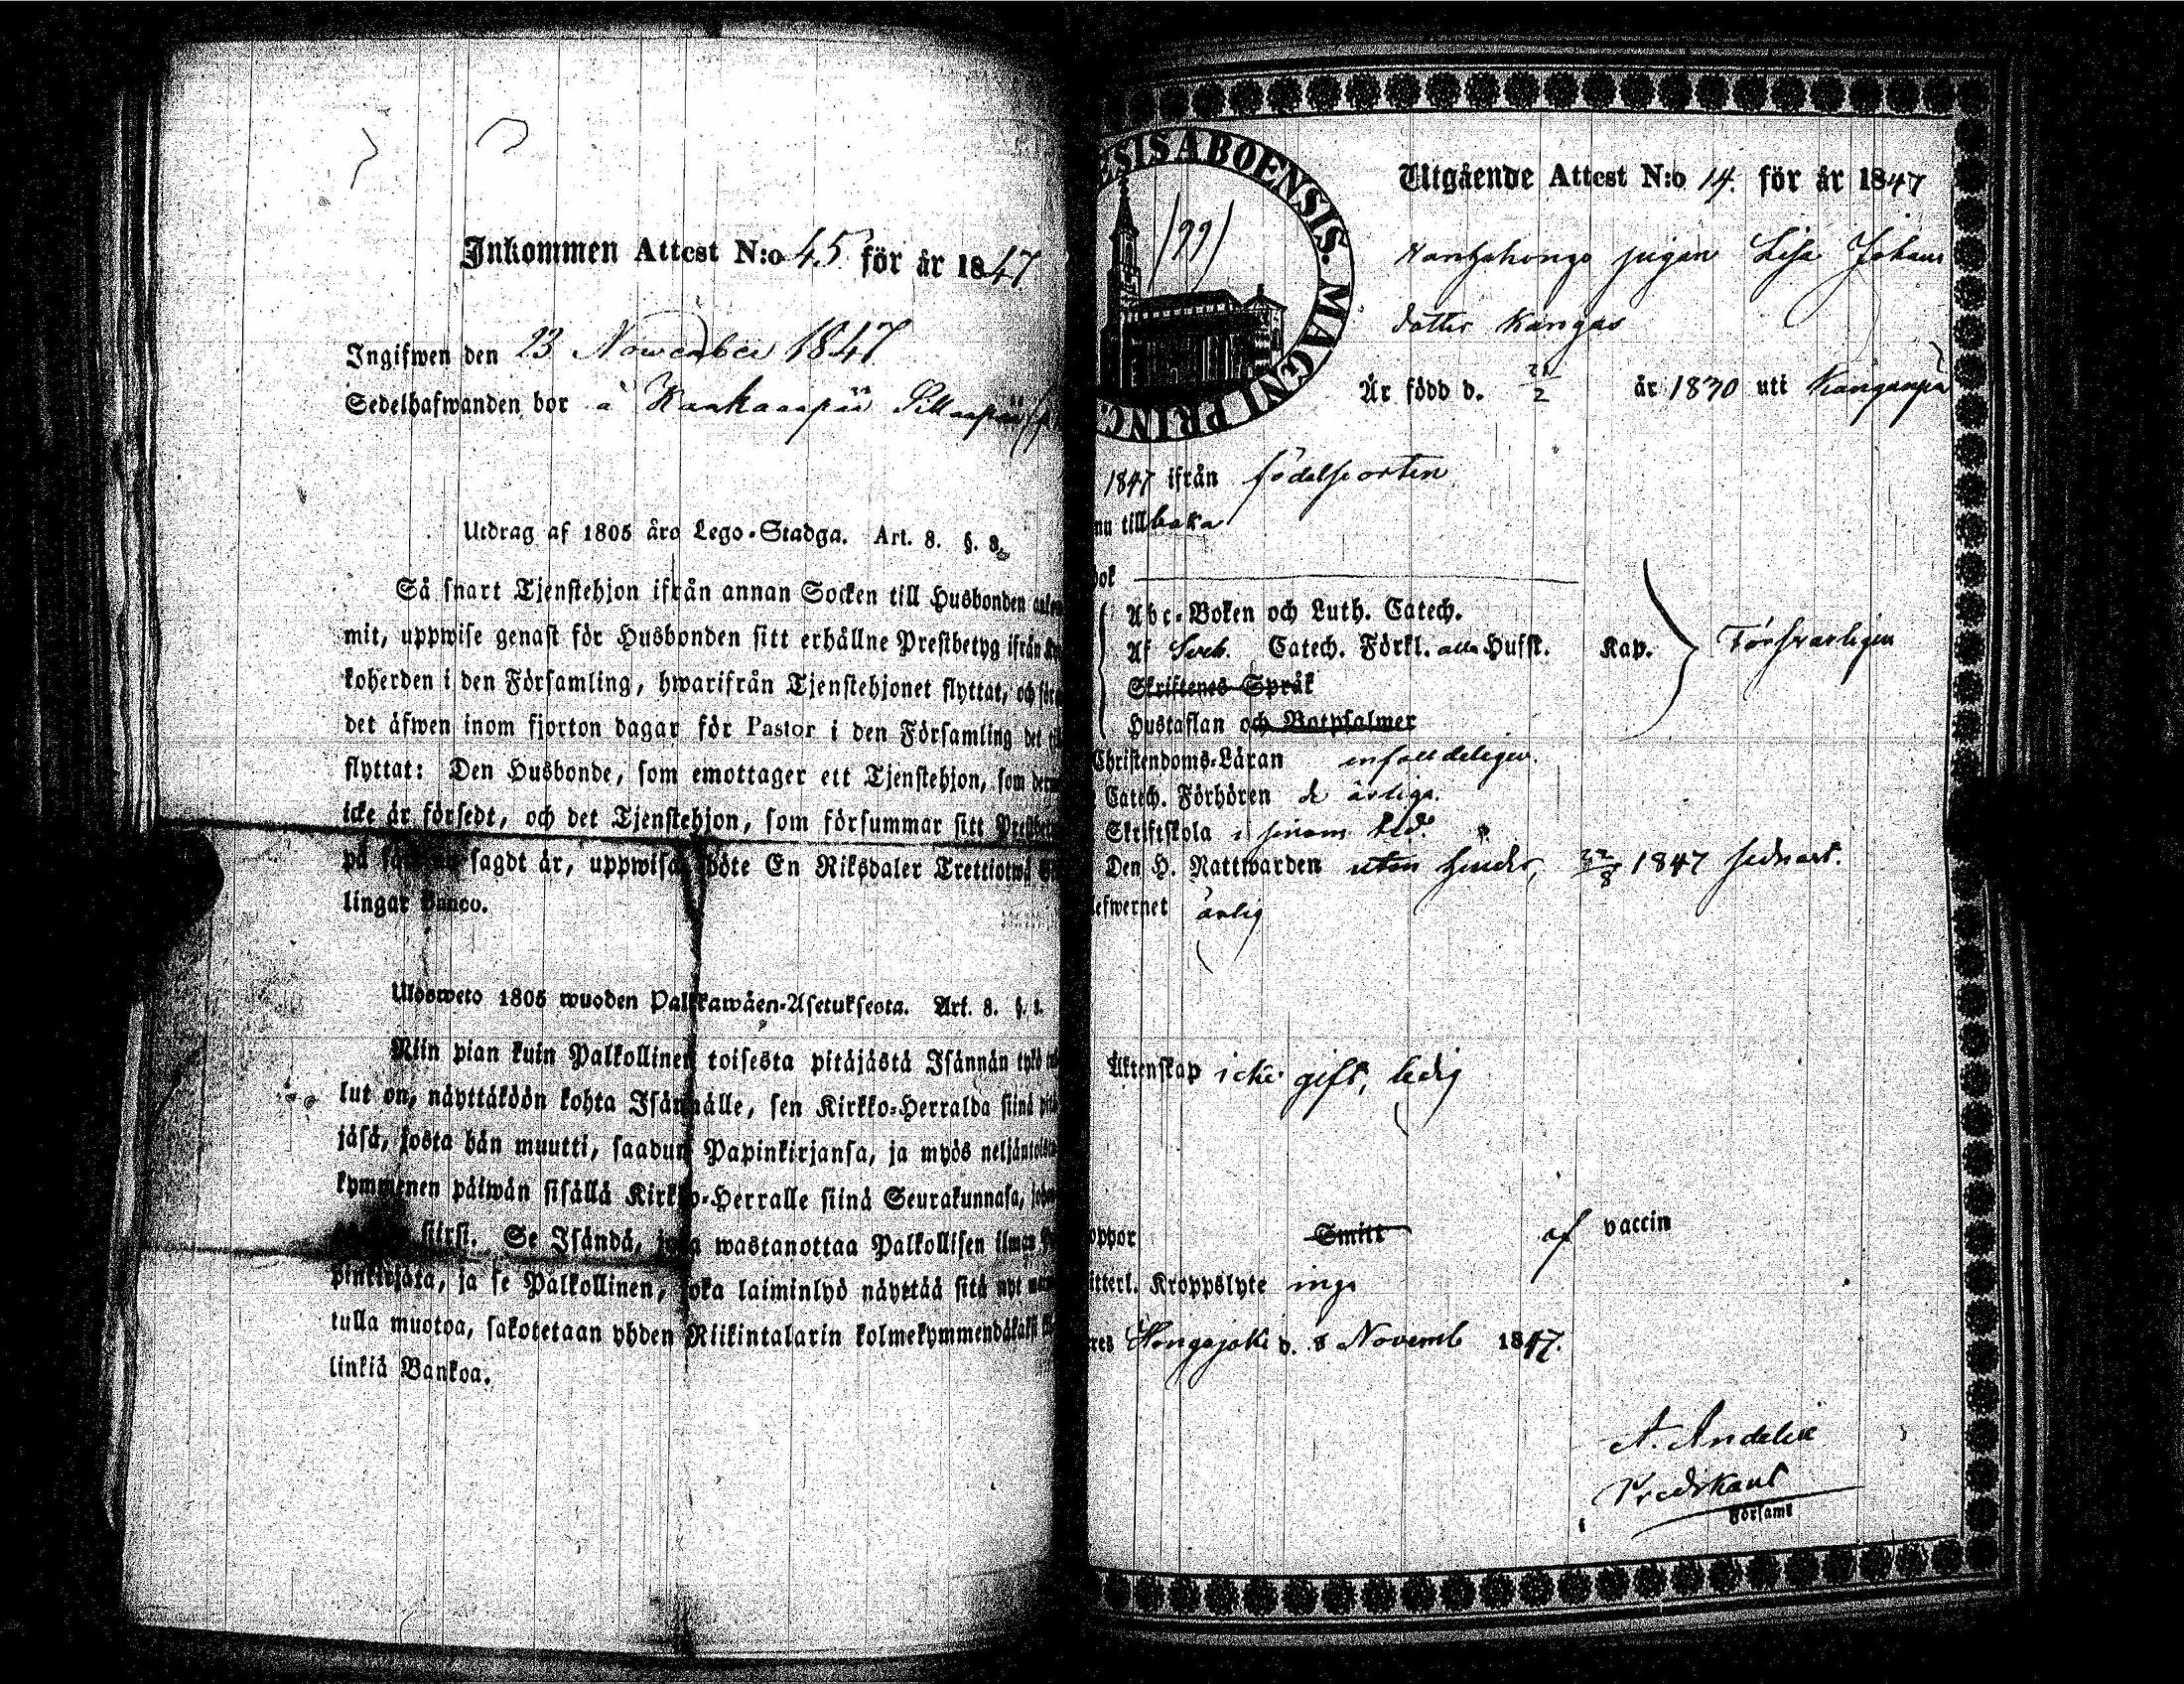 Inkommen Attest N:o 45 för år 1847
Ingifwen den 23 November 1847
Sedelhafwanden bor à Kankaanpää
Utdrag af 1805 års Lego-Stadga. Art. 8. §. 8.
Så snart Tjenstehjon ifrån annan Socken till Husbonden
mit, uppwise genast för Husbonden sitt erhållne Prestbetyg ifrån
koherden i den Församling, hwarifrån Tjenstehjonet flyttat, och
det äfwen inom fjorton dagar för Pastor i den Församling det
flyttat: Den Husbonde, som emottager ett Tjenstehjon, som
icke är försedt, och det Tjenstehjon, som försummar sitt
på sagdt är, uppwisa böte En Riksdaler Trettiotwå
lingar Banco.
Ulosweto 1805 wuoden Palkkawäen-Asetuksesta. Art. 8. §.
Niin pian kuin Palkollinen toisesta pitäjästä Isännän tykö
lut on, näyttäköön kohta Isännälle, sen Kirkko-Herralda siinä
jäsä, josta hän muutti, saadun Papinkirjansa, ja myös
kymmenen päiwän sisällä Kirkko-Herralle siinä Seurakunnasa,
siirsi. Se Isändä, joka wastanottaa Palkollisen ilman
pinkirjata, ja se Palkollinen, joka laiminlyö näyttää sitä nyt
tulla muotoa, sakotetaan yhden Riikintalarin kolmekymmendäkaksi
linkiä Bankoa.
ESIS ABOENSIS. MAGNI PRINC.
1991
Utgående Attest N:o 14. för år 1847
pigan Lisa Johans
dotter Kangas
Är född d. 21/2 år 1830 uti Kanganpä
1847 ifrån födelseorten
nu tillbaka
bok
Abc-Boken och Luth. Catech.
Af Sveb. Catech. Förkl. alla Hufst. Kap. Försvarligen
Skriftenes Språk
Hustaflan och Botpsalmer
Christendoms-Läran enfaldeligen.
Catech. Förhören de årliga.
Skriftskola i sinom tid.
Den H. Nattwarden utan hinder, 22/8 1847 sednast.
efwernet ärlig
Äktenskap icke gift, ledig
oppor Smitt af vaccin
itterl. Kroppslyte inga
res Hongojoki d. 8 Novemb 1847.
A. Andelin
Predikant
Församl